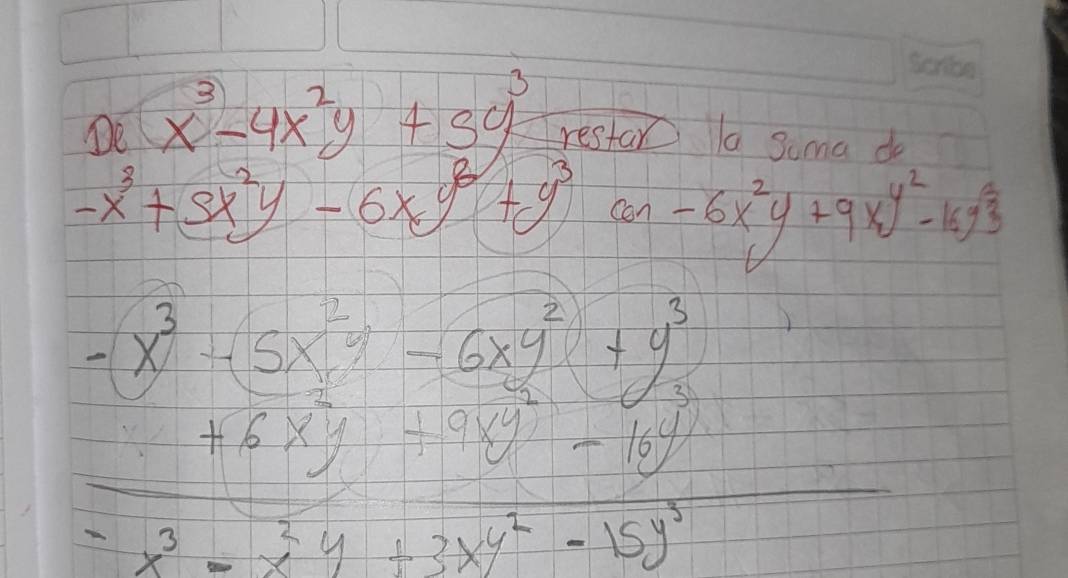 Scribe
De x³ - 4x²y + 5y³ restar la suma de
-x³ + 5x²y - 6xy² + y³ con -6x²y + 9xy² - 16y³
- x³ + 5x²y - 6xy² + y³
+ 6x²y + 9xy² - 16y³
- x³ - x²y + 3xy² - 15y³